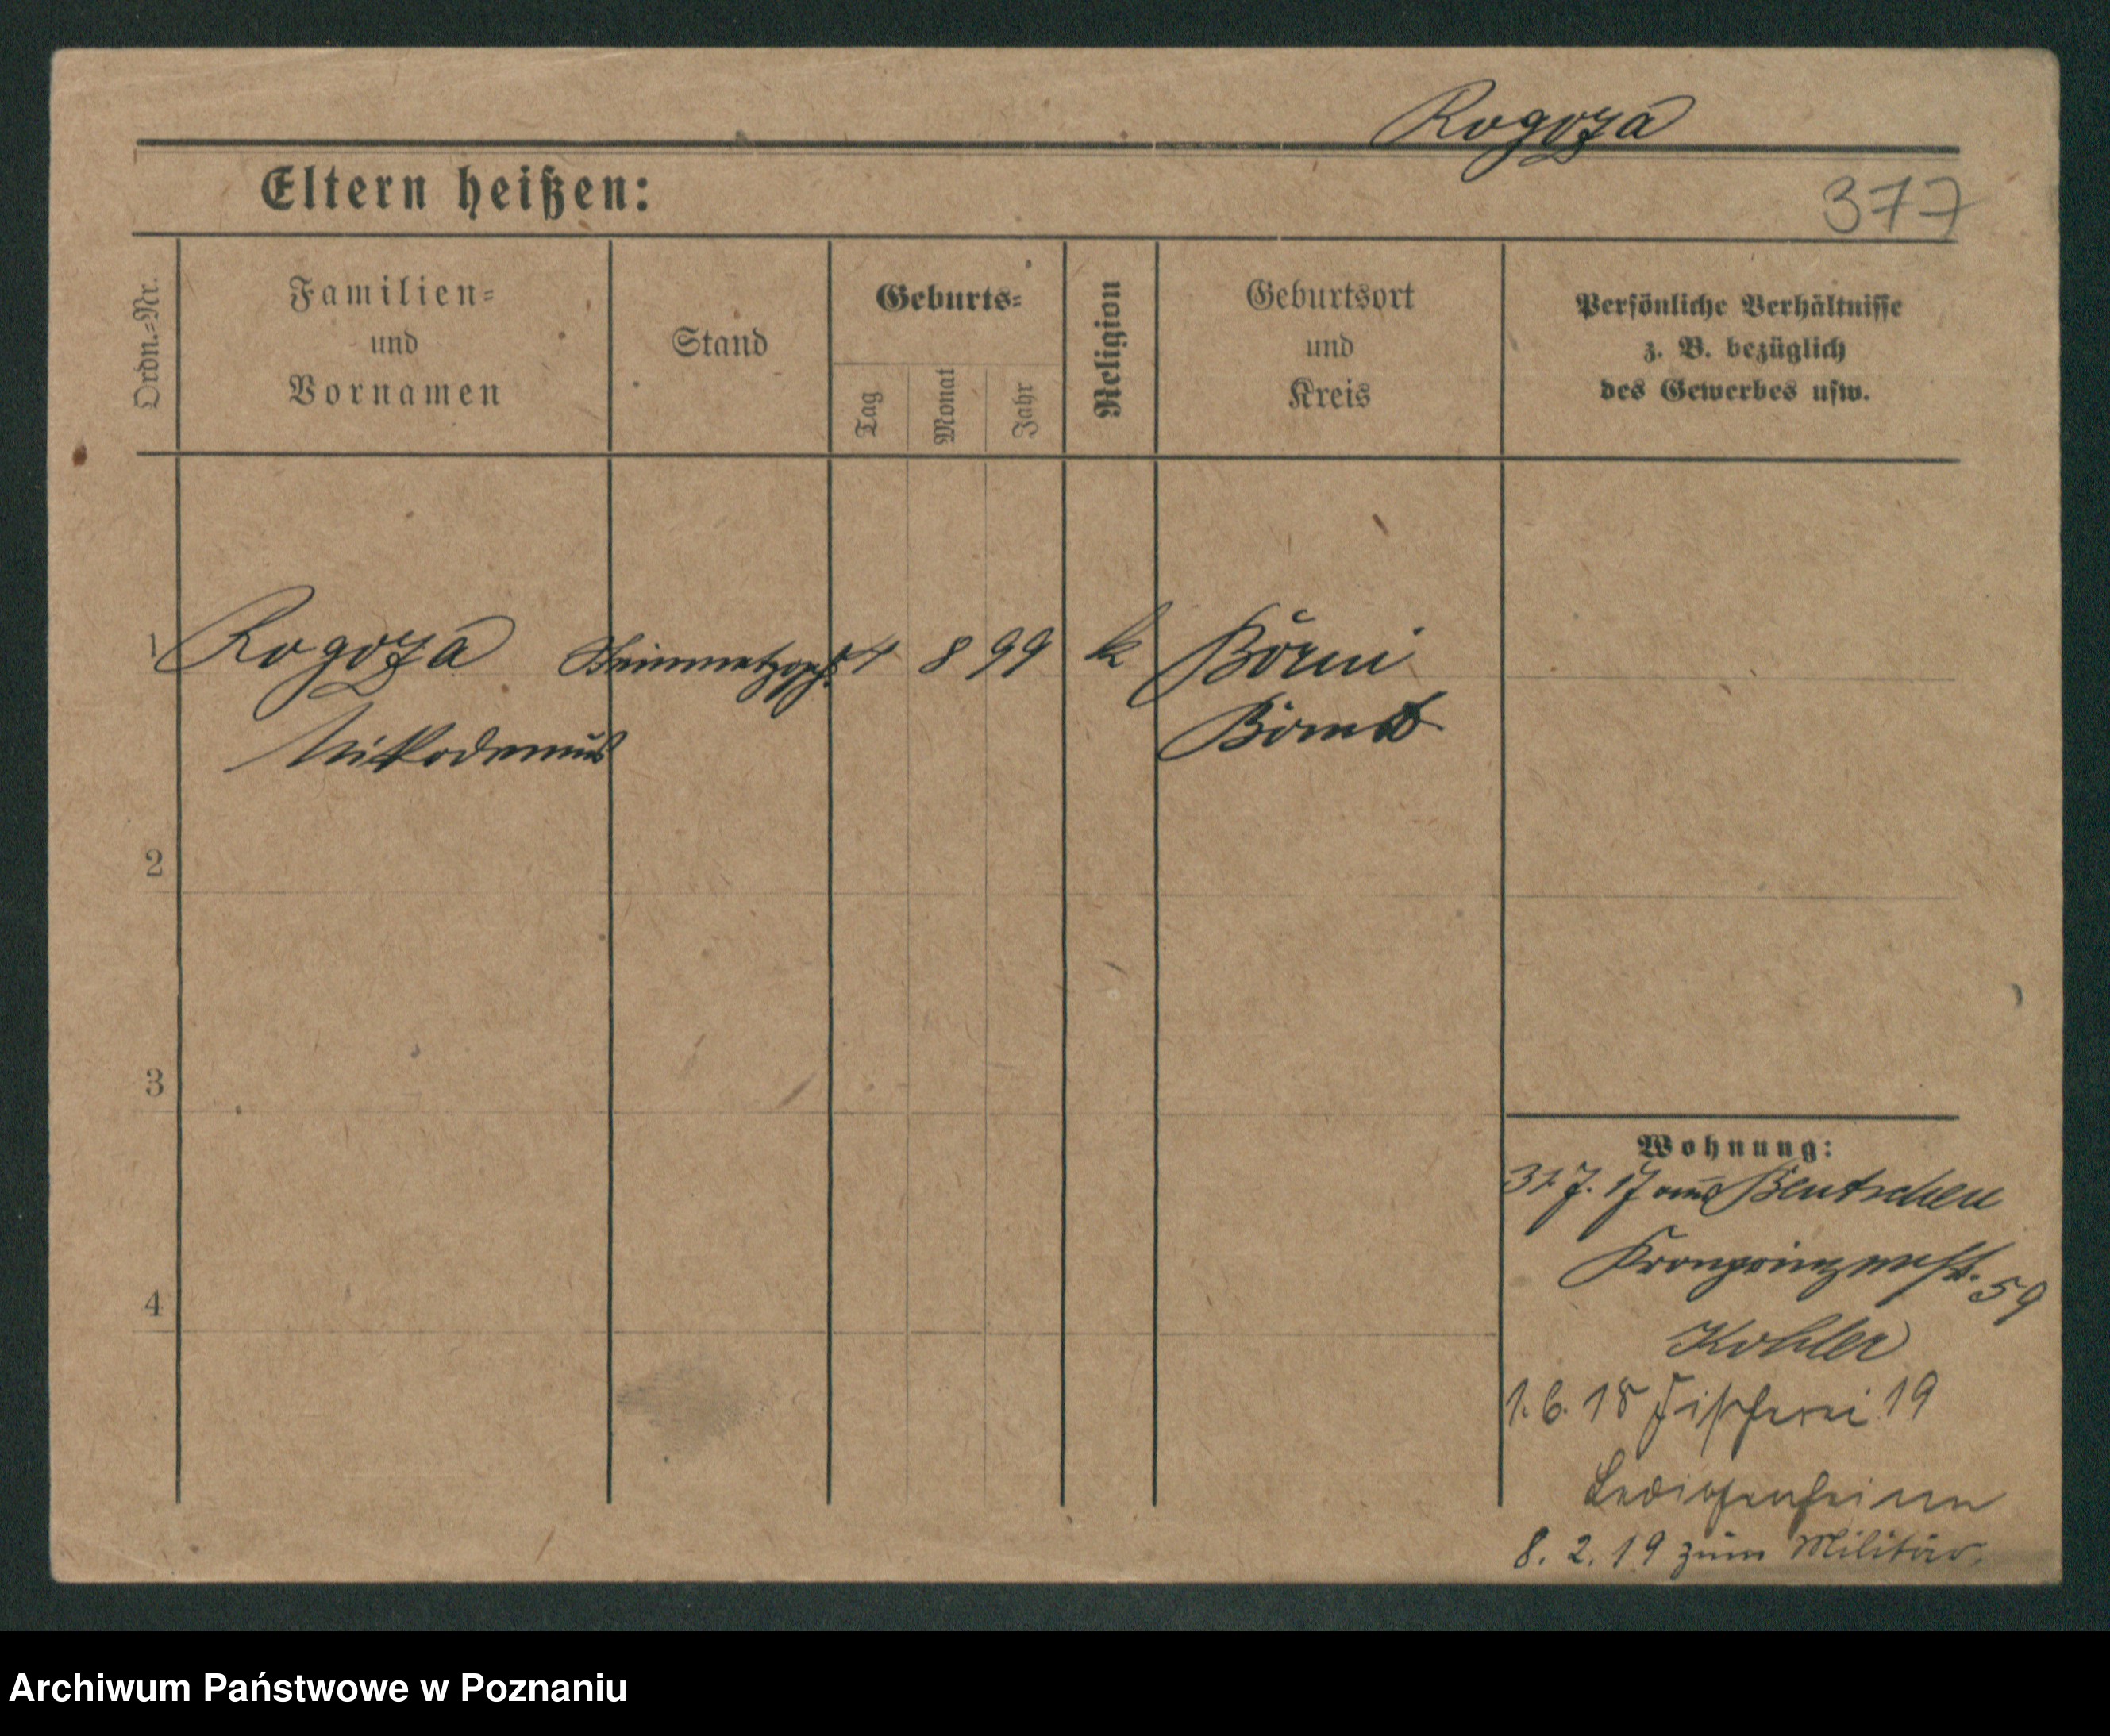 Rogoza
Eltern heißen:
377
Ordn.=Nr.
Familien=
und
Vornamen
Stand
Geburts=
Tag
Monat
Jahr
Religion
Geburtsort
und
Kreis
Persönliche Verhältnisse
z. B. bezüglich
des Gewerbes usw.
1
Rogoza 4 8 99 k
Nikodemus
Bomst
2
3
4
Wohnung:
31.7.17 aus Bentschen
Kronprinzenstr. 59
Kohler
1.6.18 Fischerei 19
Ledigenheim
8.2.19 zum Militär.
Archiwum Państwowe w Poznaniu